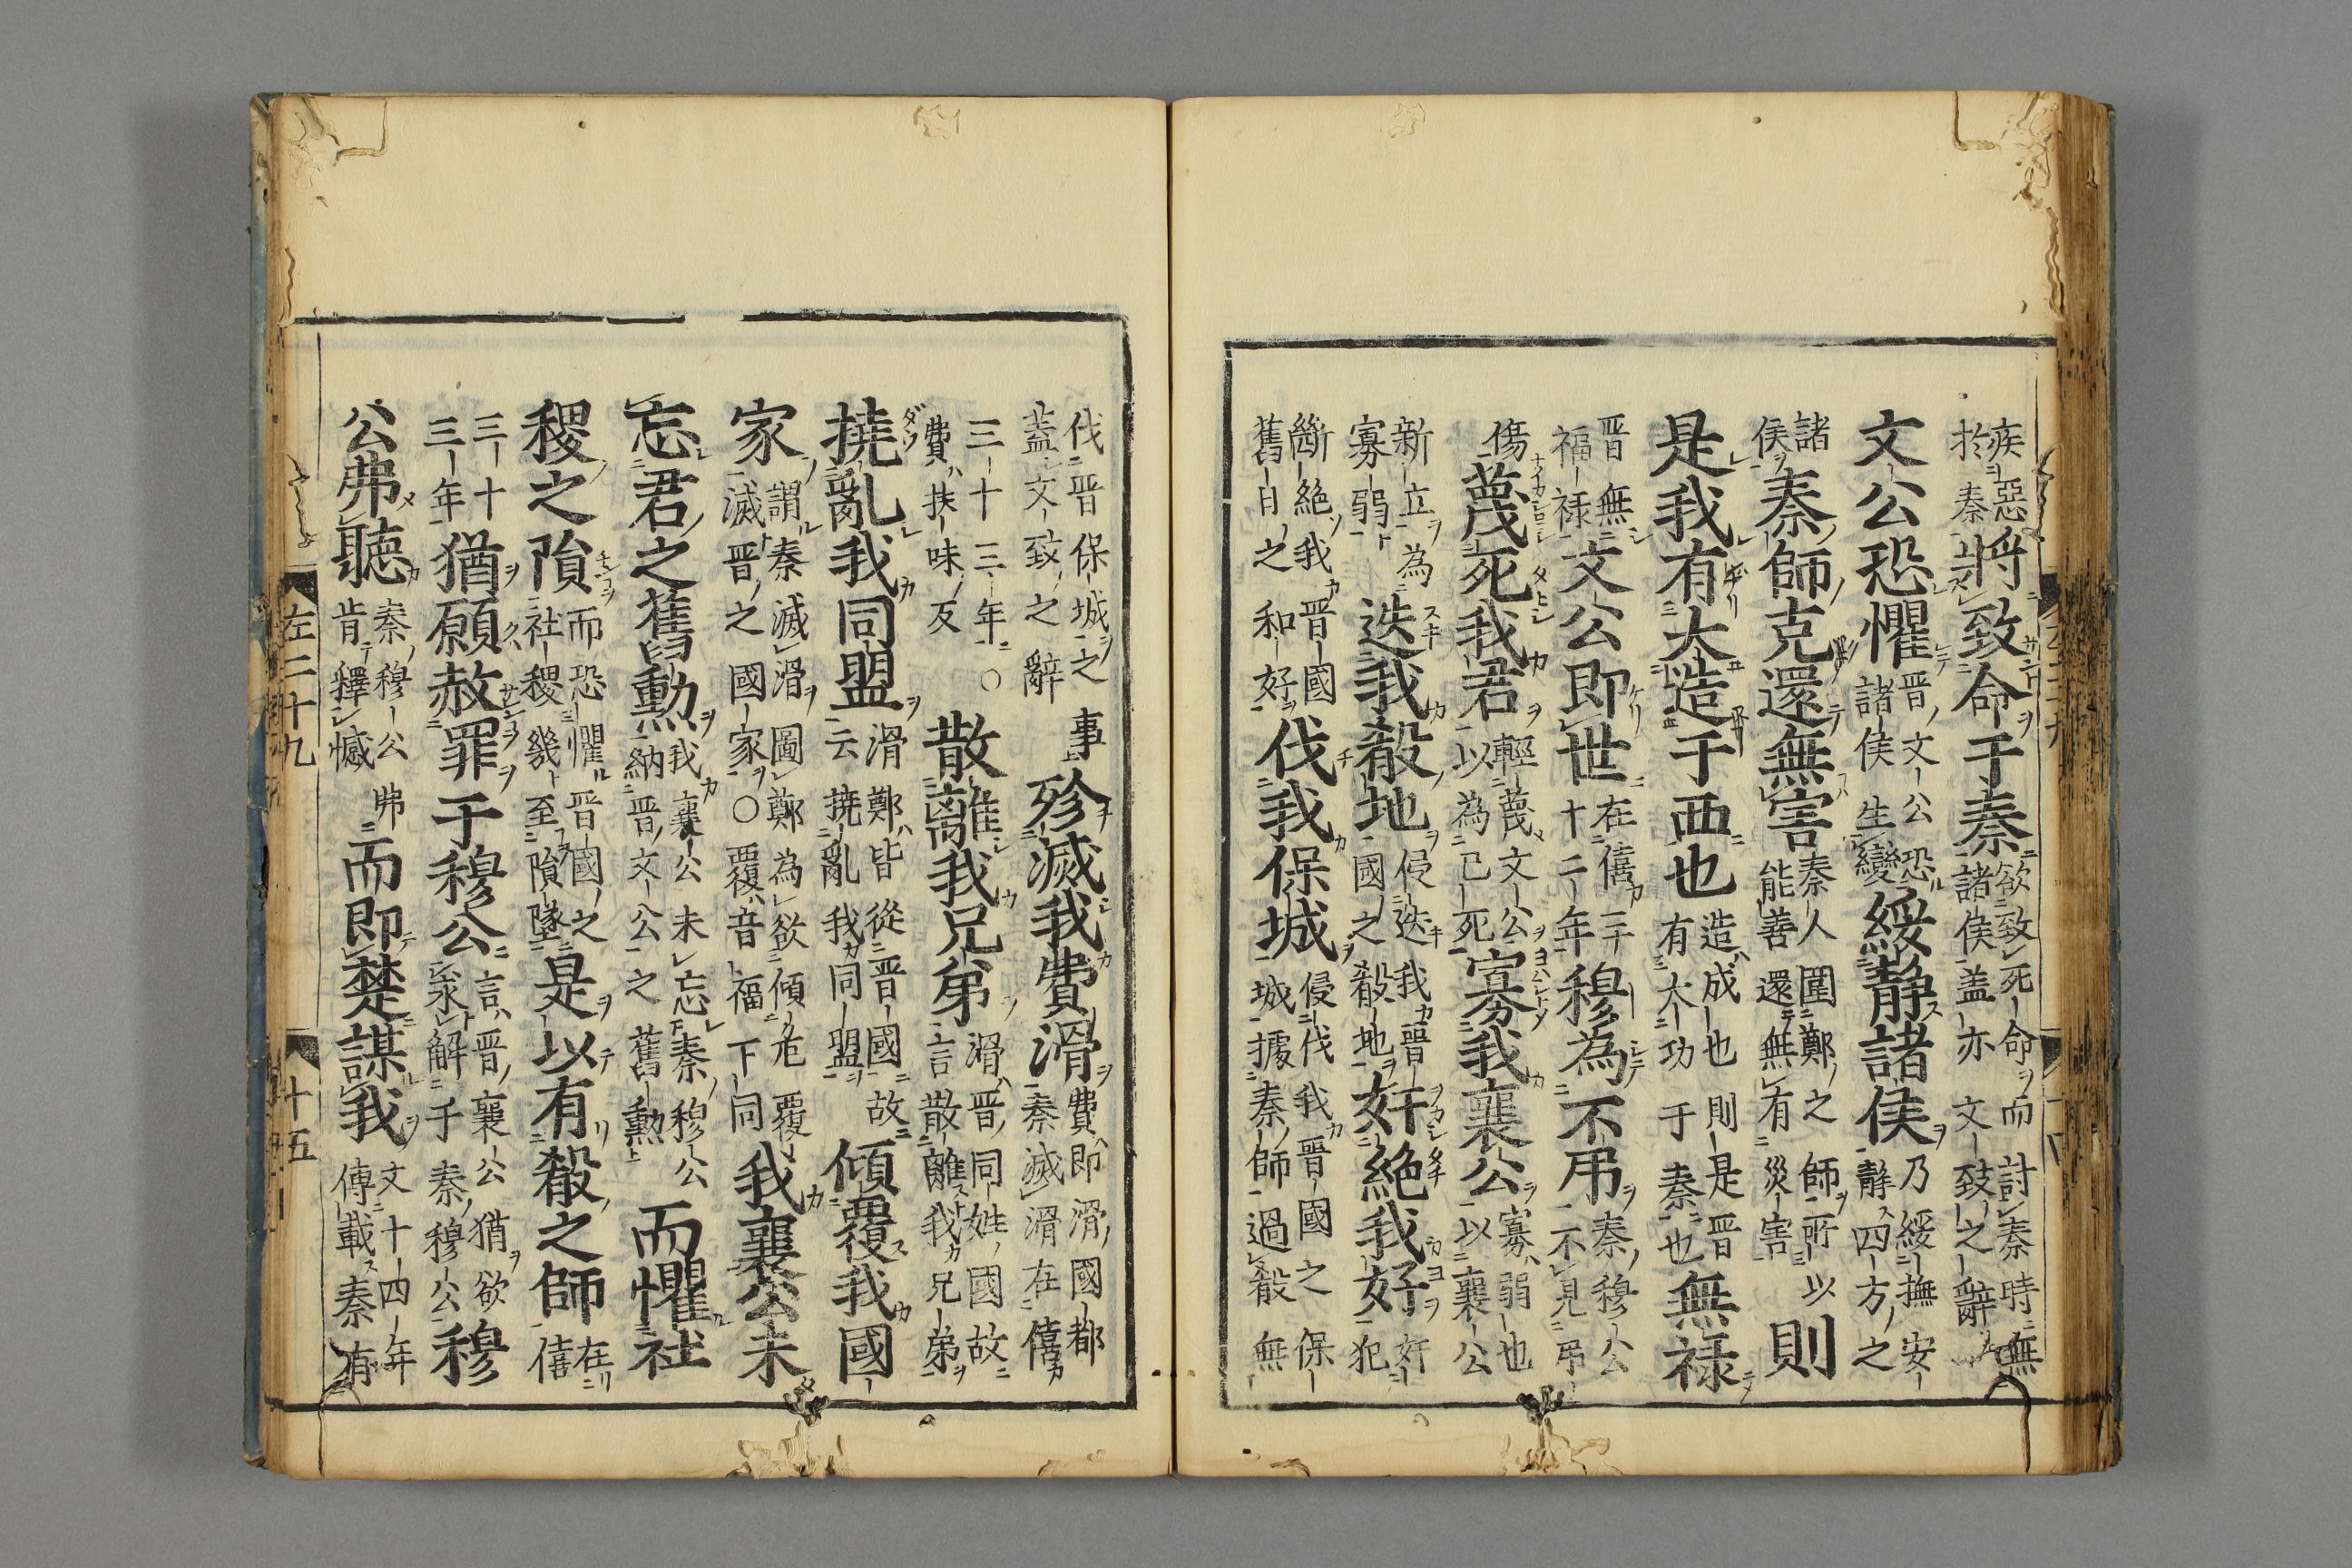 疾惡
於秦
將致命于秦
欲致死命而討秦時無
諸侯盖亦文致之辭
文公恐懼
晋文公恐
諸侯生變
綏静諸侯
乃綏撫安
静四方之
諸
侯
秦師克還無害
秦人圍鄭之師所以
能善還無有災害
則
是我有大造于西也
造成也則是晋
有大功于秦也
無禄
晋無
福禄
文公即世
在僖三十
十二年
穆為不弔
秦穆公
不見弔
傷
蔑死我君
輕蔑文公
以為已死
寡我襄公
寡弱也
以襄公
新立為
寡弱
迭我殽地
侵迭我晋
國之殽地
奸絶我好
奸
犯
斷絶我晋國
舊日之和好
伐我保城
侵伐我晋國之保
城據秦師過殽無
伐晋保城之
盖文致之辭
事
殄滅我費滑
費即滑國都
秦滅滑在僖
三十三年○
費扶味反
散離我兄弟
滑晋同姓國故
言散離我兄弟
撓亂我同盟
滑鄭皆從晋國故
云撓亂我同盟
傾覆我國
家
謂秦滅滑圖鄭為欲傾危覆
滅晋之國家○覆音福下同
我襄公未
忘君之舊勳
我襄公未忘秦穆公
納晋文公之舊勳
而懼社
稷之隕
而恐懼晋國之
社稷幾至隕墜
是以有殽之師
在
僖
三十
三年
猶願赦罪于穆公
言晋襄公猶欲
求解于秦穆公
穆
公弗聽
秦穆公弗
肯釋憾
而即楚謀我
文十四年
傳載秦有
左二十九
十五